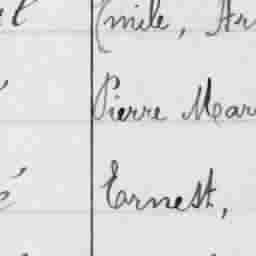 Emile, Ar
Pierre Mar
Ernest,